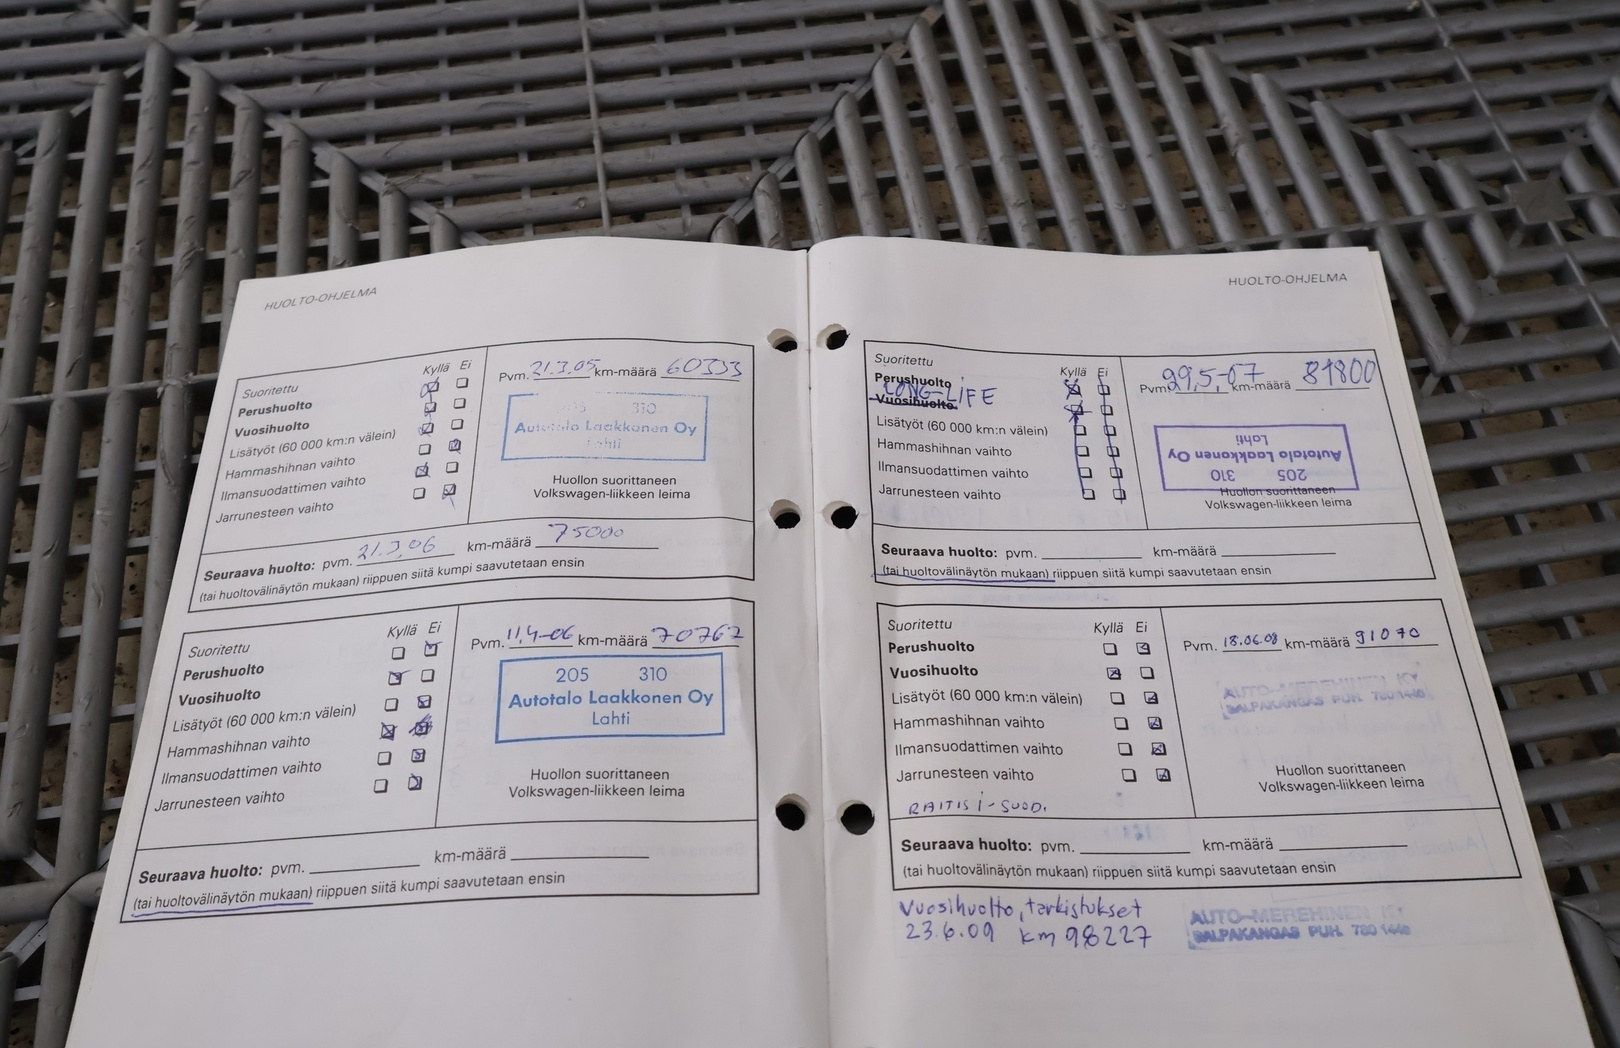 HUOLTO-OHJELMA
Suoritettu Kyllä Ei
Perushuolto
Vuosihuolto
Lisätyöt (60 000 km:n välein)
Hammashihnan vaihto
Ilmansuodattimen vaihto
Jarrunesteen vaihto
Pvm. 21.3.05 km-määrä 60333
205 310
Autotalo Laakkonen Oy
Lahti
Huollon suorittaneen
Volkswagen-liikkeen leima
Seuraava huolto: pvm. 21.3.06 km-määrä 75000
(tai huoltovälinäytön mukaan) riippuen siitä kumpi saavutetaan ensin
Suoritettu Kyllä Ei
Perushuolto
Vuosihuolto
Lisätyöt (60 000 km:n välein)
Hammashihnan vaihto
Ilmansuodattimen vaihto
Jarrunesteen vaihto
Pvm. 11,4-06 km-määrä 70762
205 310
Autotalo Laakkonen Oy
Lahti
Huollon suorittaneen
Volkswagen-liikkeen leima
Seuraava huolto: pvm. km-määrä
(tai huoltovälinäytön mukaan) riippuen siitä kumpi saavutetaan ensin
HUOLTO-OHJELMA
Suoritettu Kyllä Ei
Perushuolto
LONG-LIFE
Vuosihuolto
Lisätyöt (60 000 km:n välein)
Hammashihnan vaihto
Ilmansuodattimen vaihto
Jarrunesteen vaihto
Pvm. 29,5-07 km-määrä 81800
205 310
Autotalo Laakkonen Oy
Lahti
Huollon suorittaneen
Volkswagen-liikkeen leima
Seuraava huolto: pvm. km-määrä
(tai huoltovälinäytön mukaan) riippuen siitä kumpi saavutetaan ensin
Suoritettu Kyllä Ei
Perushuolto
Vuosihuolto
Lisätyöt (60 000 km:n välein)
Hammashihnan vaihto
Ilmansuodattimen vaihto
Jarrunesteen vaihto
RAITIS i-SUOD.
Pvm. 18.06.08 km-määrä 91070
AUTO-MEREHINEN KY
SALPAKANGAS PUH. 780 1446
Huollon suorittaneen
Volkswagen-liikkeen leima
Seuraava huolto: pvm. km-määrä
(tai huoltovälinäytön mukaan) riippuen siitä kumpi saavutetaan ensin
Vuosihuolto, tarkistukset
23.6.09 km 98227
AUTO-MEREHINEN KY
SALPAKANGAS PUH. 780 1446